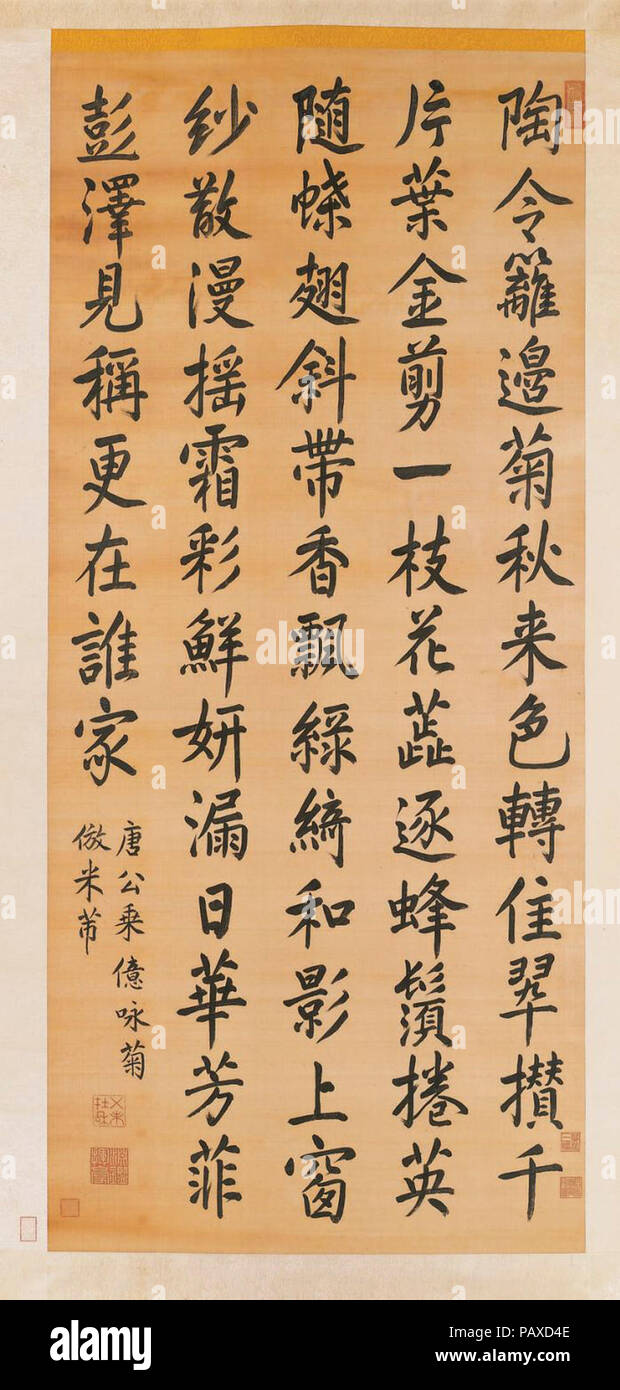 陶令籬邊菊秋来色轉佳翠攢千
片葉金剪一枝花蕋逐蜂鬚捲英
随蝶翅斜帶香飄綠綺和影上窗
紗散漫揺霜彩鮮妍漏日華芳菲
彭澤見稱更在誰家
唐公乘億咏菊
倣米芾
alamy
Image ID: PAXD4E
www.alamy.com